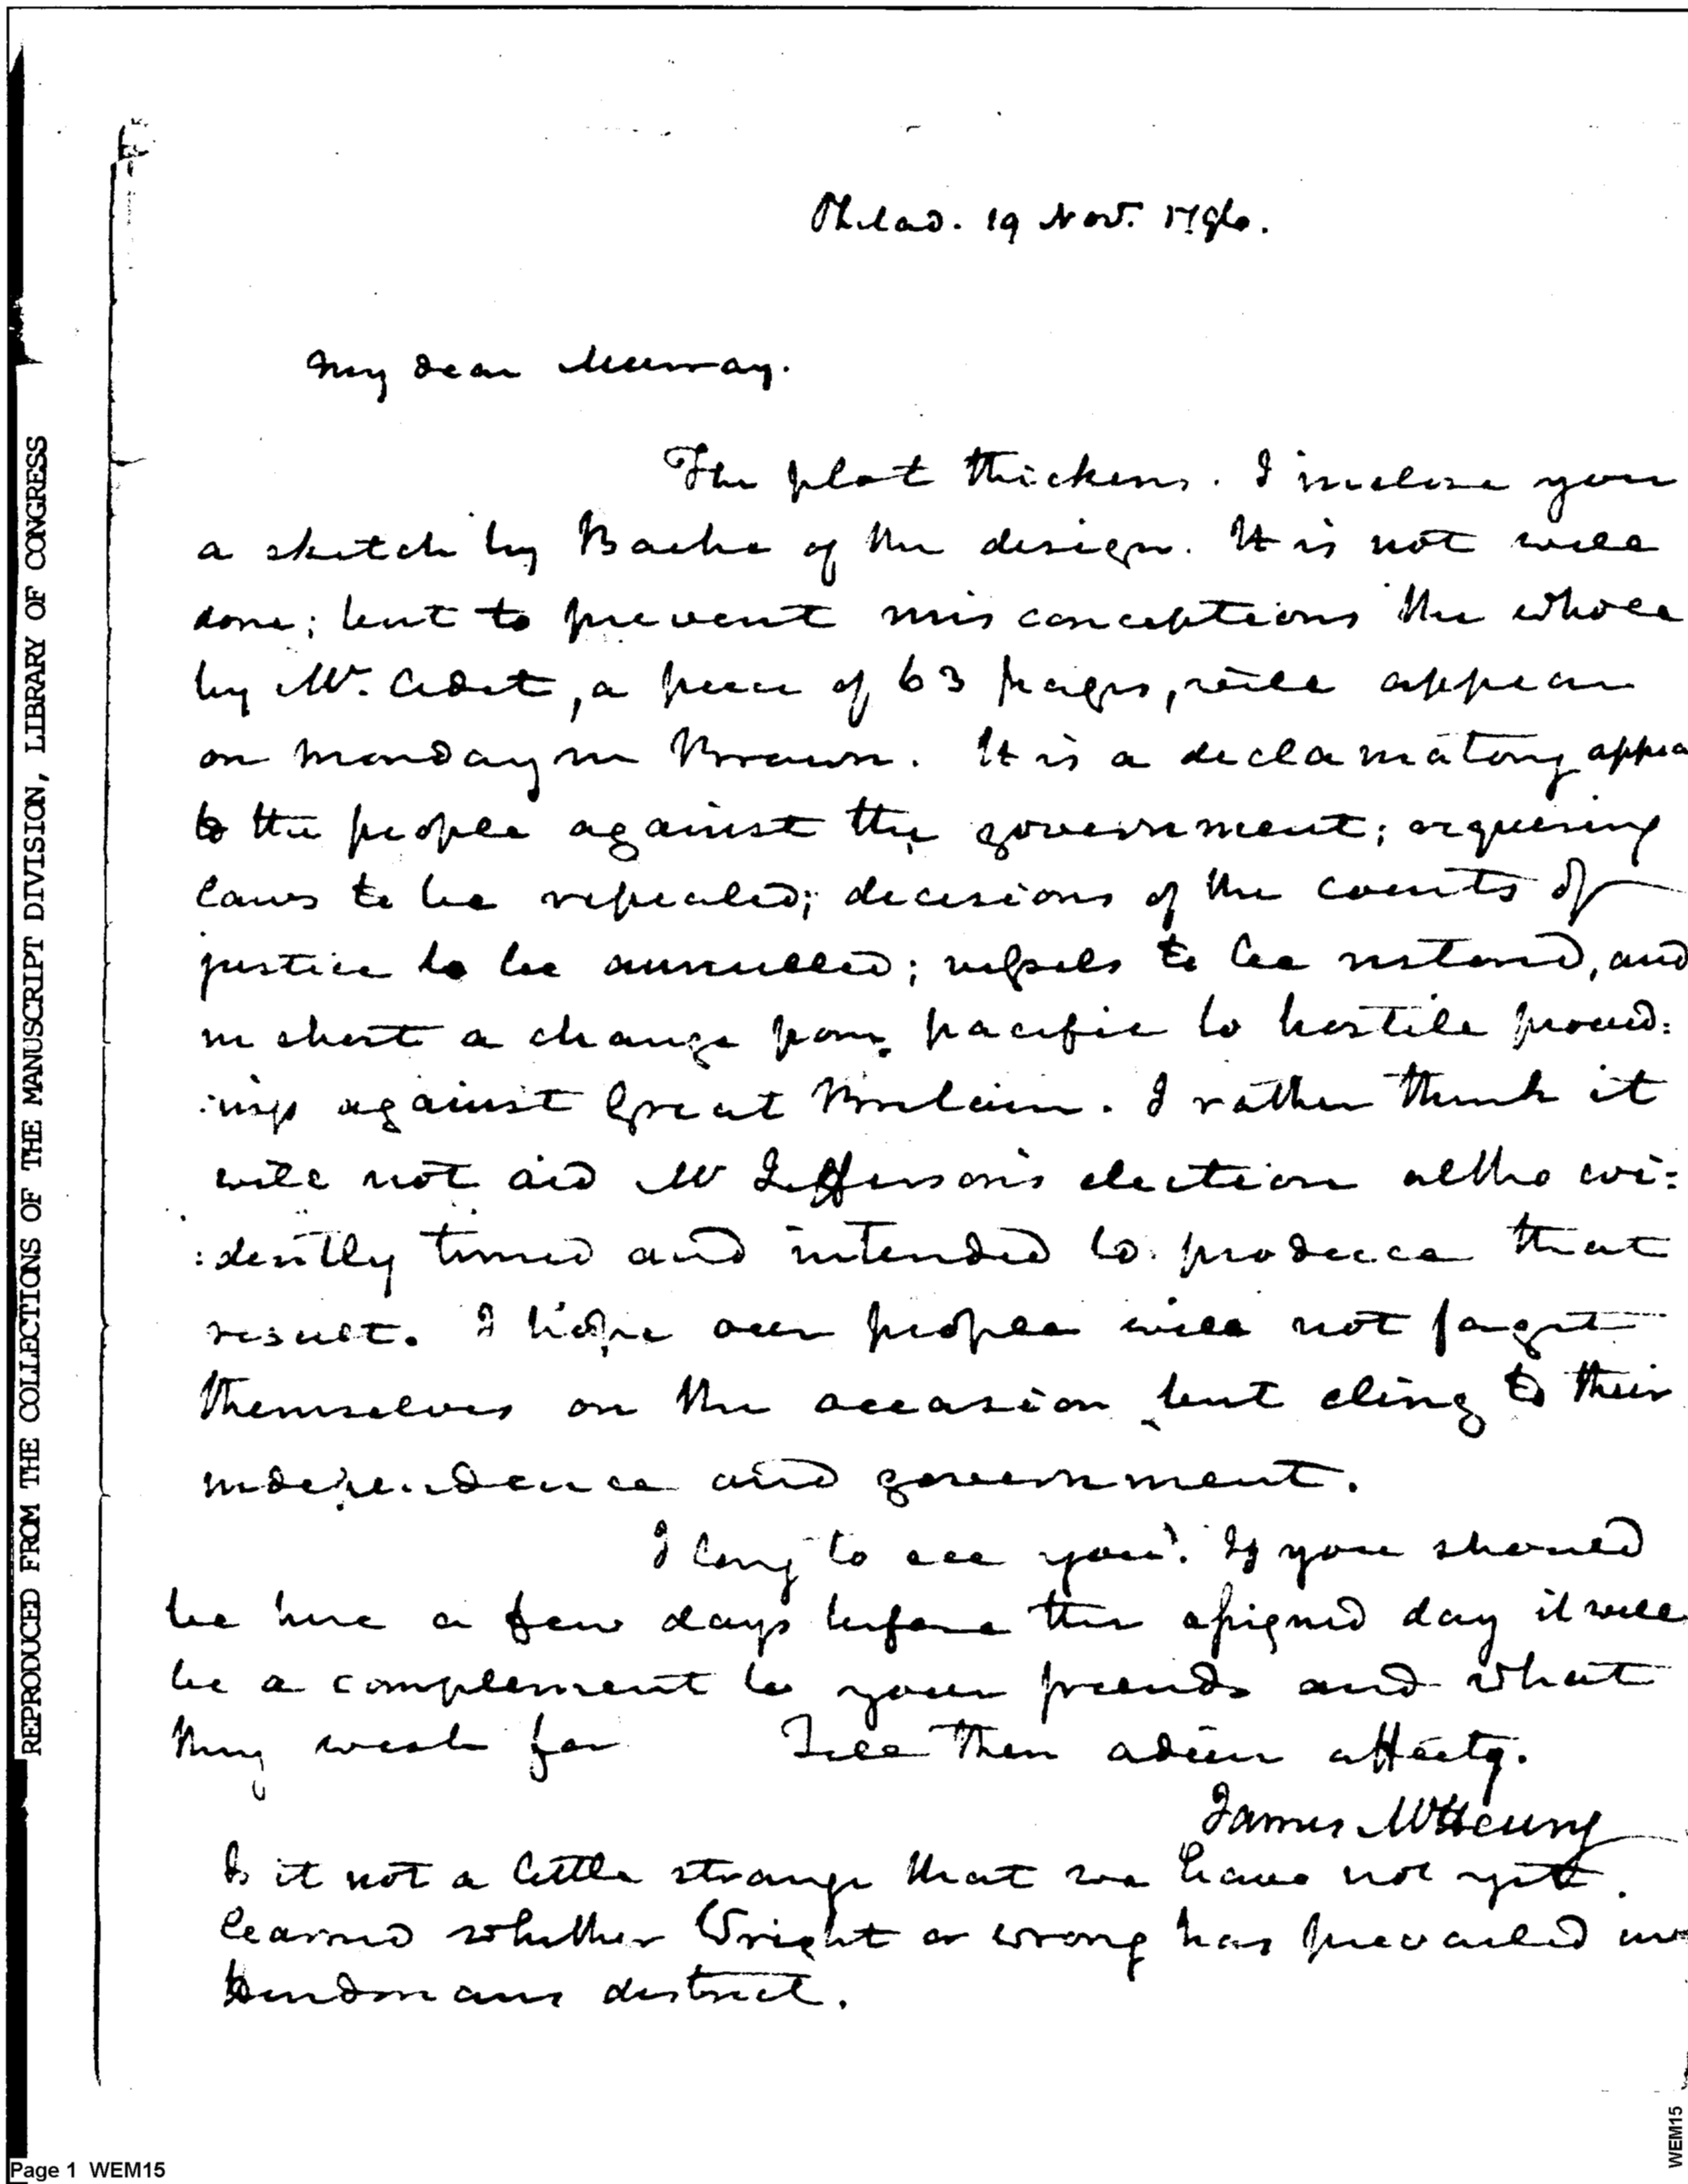 Philad. 19 Nov. 1796.
My dear Murray.
The plot thickens. I inclose you
a sketch by Bache of the design. It is not well
done; but to prevent misconceptions the whole
by Mr. Adet, a piece of 63 pages, will appear
on Monday in Brown. It is a declamatory appea
to the people against the government; requiring
laws to be repealed; decisions of the courts of
justice to be annulled; vessels to be restored, and
in short a change from pacific to hostile proceed:
:ings against Great Britain. I rather think it
will not aid Mr Jefferson's election altho evi:
:dently timed and intended to produce that
result. I hope our people will not forget
themselves on the occasion but cling to their
independence and government.
I long to see you. If you should
be here a few days before the assigned day it will
be a complement to your friends and what
they wish for Till then adieu affectly.
James McHenry
Is it not a little strange that we have not yet
learned whether Wright or wrong has prevailed in
Hindmans district.
REPRODUCED FROM THE COLLECTIONS OF THE MANUSCRIPT DIVISION, LIBRARY OF CONGRESS
Page 1 WEM15
WEM15